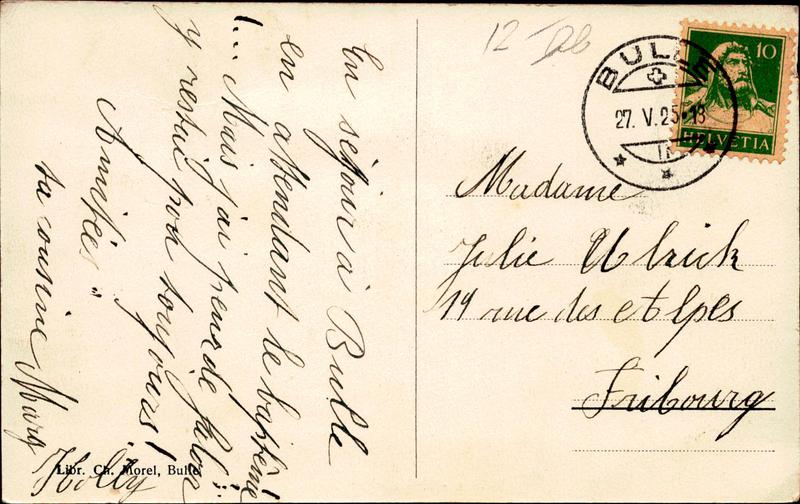 En séjour à Bulle
en attendant le baptême
!... Mais j'ai peur de
y rester pour toujours!
Amitiés.
ta cousine Mary
12
BULLE
27. V. 25-18
10
HELVETIA
Madame
Julie Ulrich
14 rue des Alpes
Fribourg
Libr. Ch. Morel, Bulle